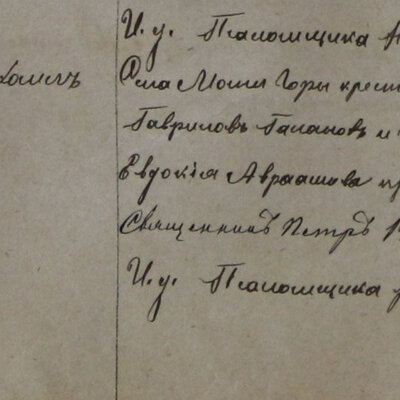 И. д. Псаломщика
Села Мошы Горы крест
Гаврилов Галанов и
Евдокія Авраамова
Священникъ Петръ
И. д. Псаломщика